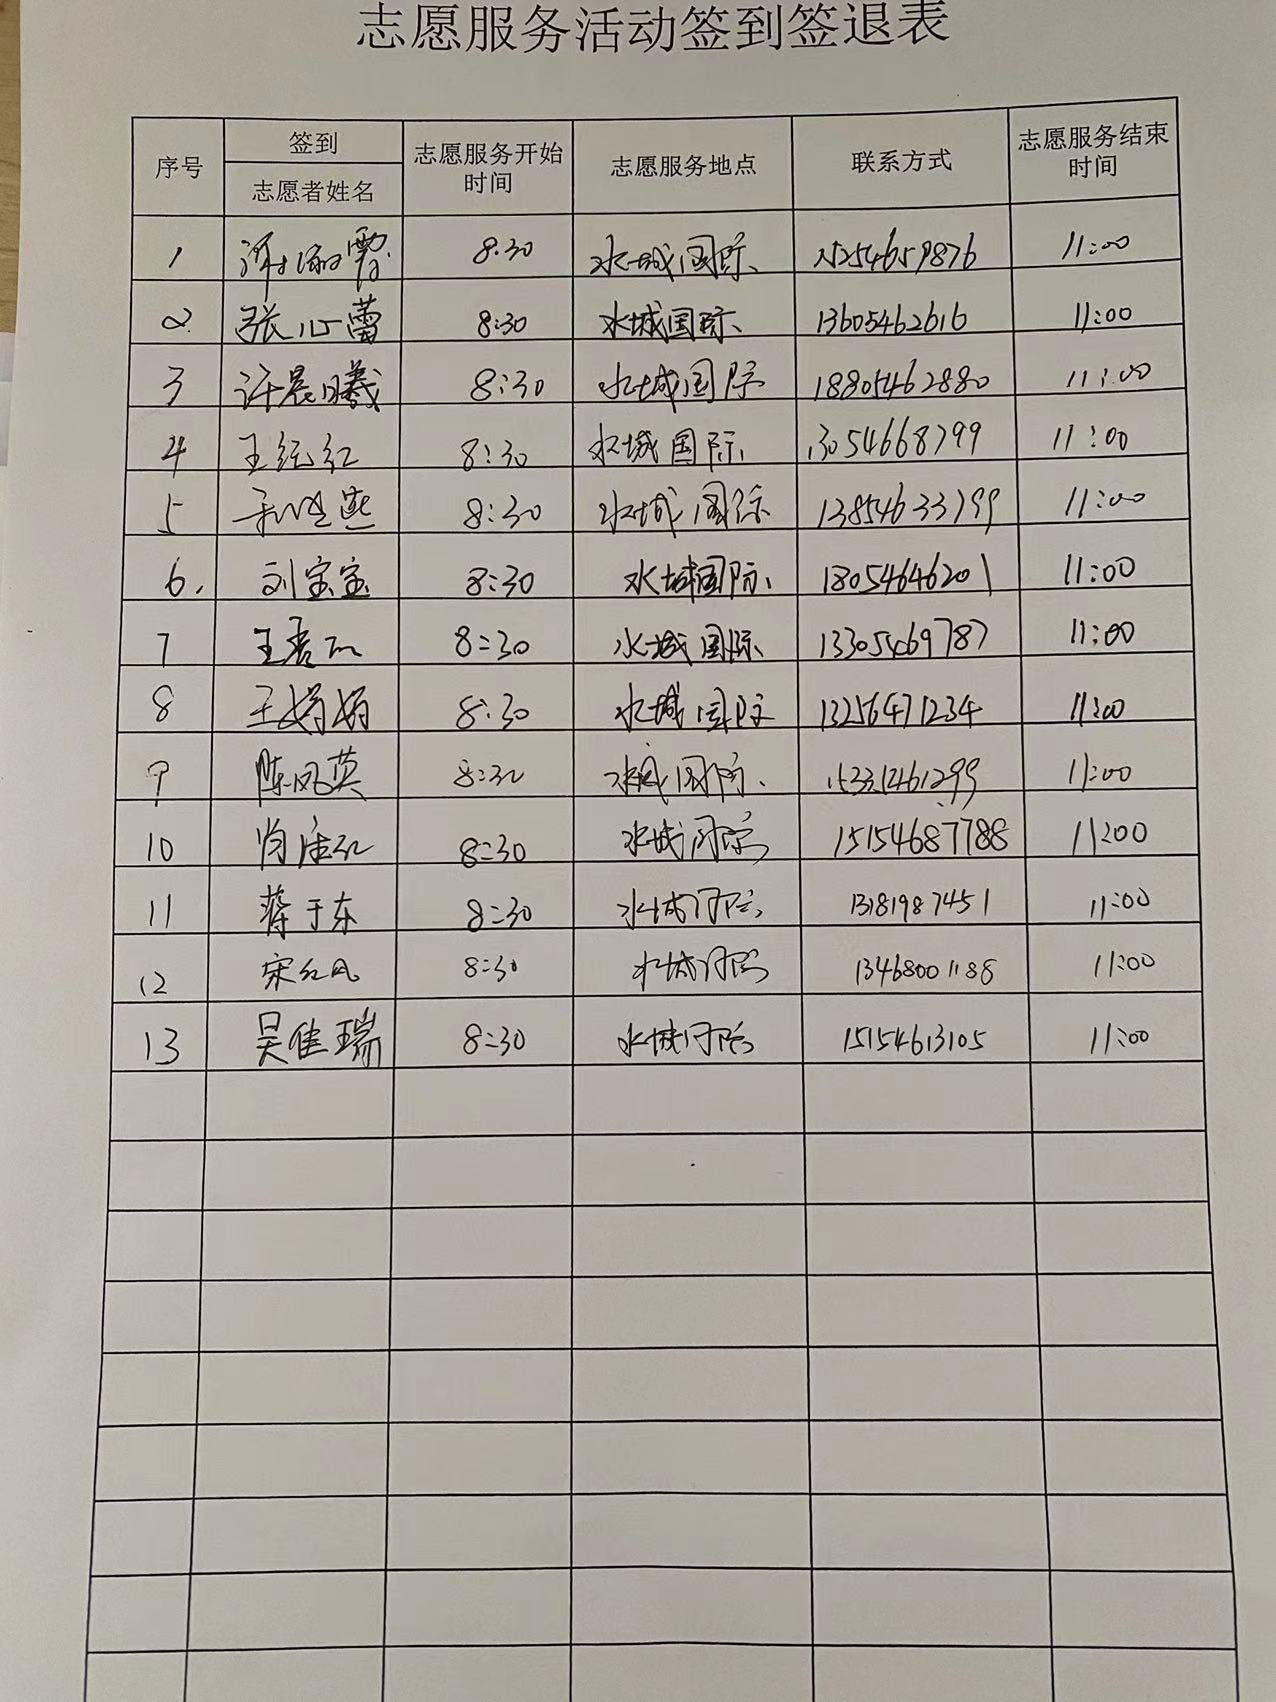 志愿服务活动签到签退表
序号 签到 志愿者姓名 志愿服务开始时间 志愿服务地点 联系方式 志愿服务结束时间
1 8:30 水城国际 15254659876 11:00
2 张心蕾 8:30 水城国际 13605462616 11:00
3 许晨曦 8:30 水城国际 18805462880 11:00
4 王红 8:30 水城国际 13054668799 11:00
5 8:30 水城国际 13854633799 11:00
6. 刘宝宝 8:30 水城国际 18054646201 11:00
7 王 8:30 水城国际 13305469787 11:00
8 王娟娟 8:30 水城国际 13256471234 11:00
9 陈凤英 8:30 水城国际 11:00
10 8:30 水城国际 15154687788 11:00
11 蒋于东 8:30 水城国际 13181987451 11:00
12 宋红凤 8:30 水城国际 13468001188 11:00
13 吴佳瑞 8:30 水城国际 15154613105 11:00